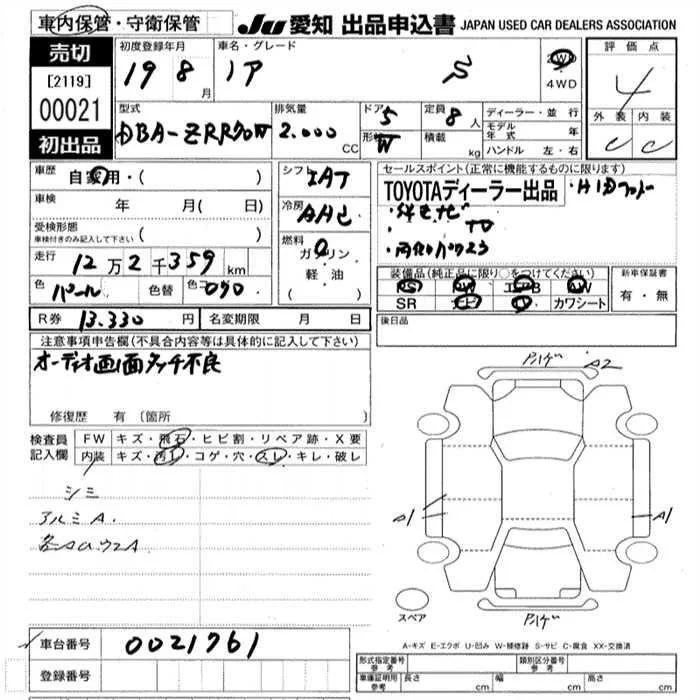 車内保管・守衛保管
JU 愛知 出品申込書 JAPAN USED CAR DEALERS ASSOCIATION
売切
[2119]
00021
初出品
初度登録年月 19 8月
車名・グレード ノア S
2WD
4WD
評価点
4
外装 内装
C C
型式 DBA-ZRR70W
排気量 2.000 CC
ドア 5
形状 W
定員 8人
積載 kg
ディーラー・並行
モデル年式 年
ハンドル 左・右
車歴 自家用・( )
車検 年 月( 日)
受検形態
車検付きのみ記入して下さい ( )
走行 12万2千359km
色 パール 色替 色コード 070
シフト IAT
冷房 AAC
燃料 ガソリン
軽・油
( )
セールスポイント(正常に機能するものに限ります)
TOYOTAディーラー出品
・HID
・純正ナビ
・両側パワスラ
装備品(純正品に限り○をつけてください)
PS PW エアB AW
SR ナビ TV カワシート
新車保証書
有・無
R券 13.330円 名変期限 月 日
後日品
注意事項申告欄(不具合内容等は具体的に記入して下さい)
オーディオ画面タッチ不良
修復歴 有(箇所 )
検査員記入欄
FW キズ・飛石・ヒビ割・リペア跡・X要
内装 キズ・汚れ・コゲ・穴・スレ・キレ・破れ
シミ
アルミA.
各AUウスA
ハハゲ A2
A1 A1
ハハゲ
スペア
A-キズ E-エクボ U-凹み W-補修跡 S-サビ C-腐食 XX-交換済
車台番号 0021761
登録番号
形式指定番号 参考
類別区分番号 参考
車庫証明用 参考 長さ cm 幅 cm 高さ cm